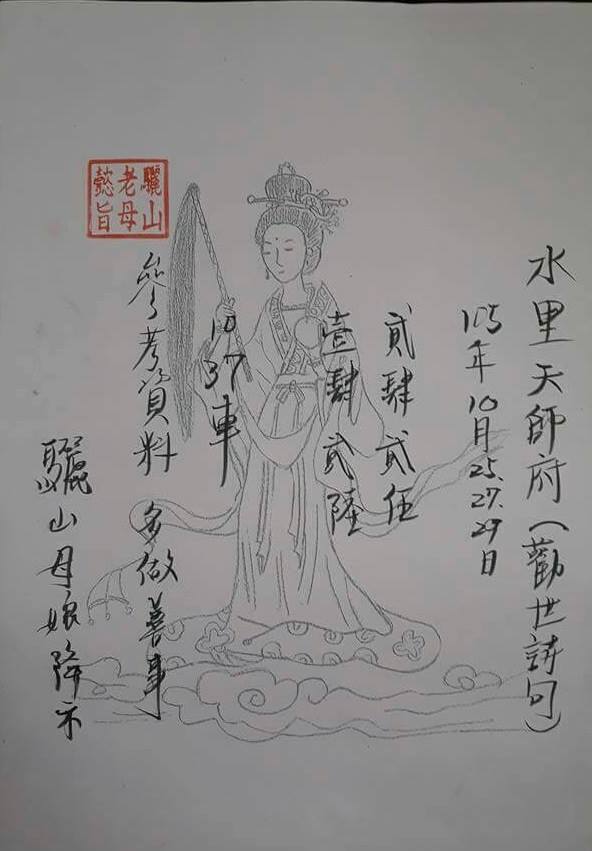 水里天師府(勸世詩句)
105年10月25.27.29日
貳肆貳伍
壹肆貳陸
10
37車
參考資料 多做善事
驪山母娘降示
驪山
老母
懿旨